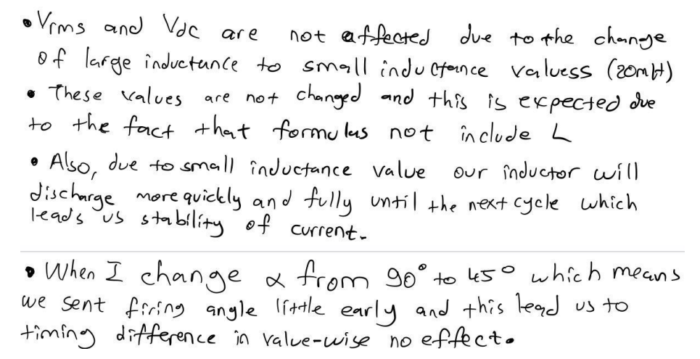 • Vrms and Vdc are not affected due to the change
of large inductance to small inductance valuess (20mH)
• These values are not changed and this is expected due
to the fact that formulas not include L
• Also, due to small inductance value our inductor will
discharge more quickly and fully until the next cycle which
leads us stability of current.
• When I change α from 90° to 45° which means
we sent firing angle little early and this lead us to
timing difference in value-wise no effect.